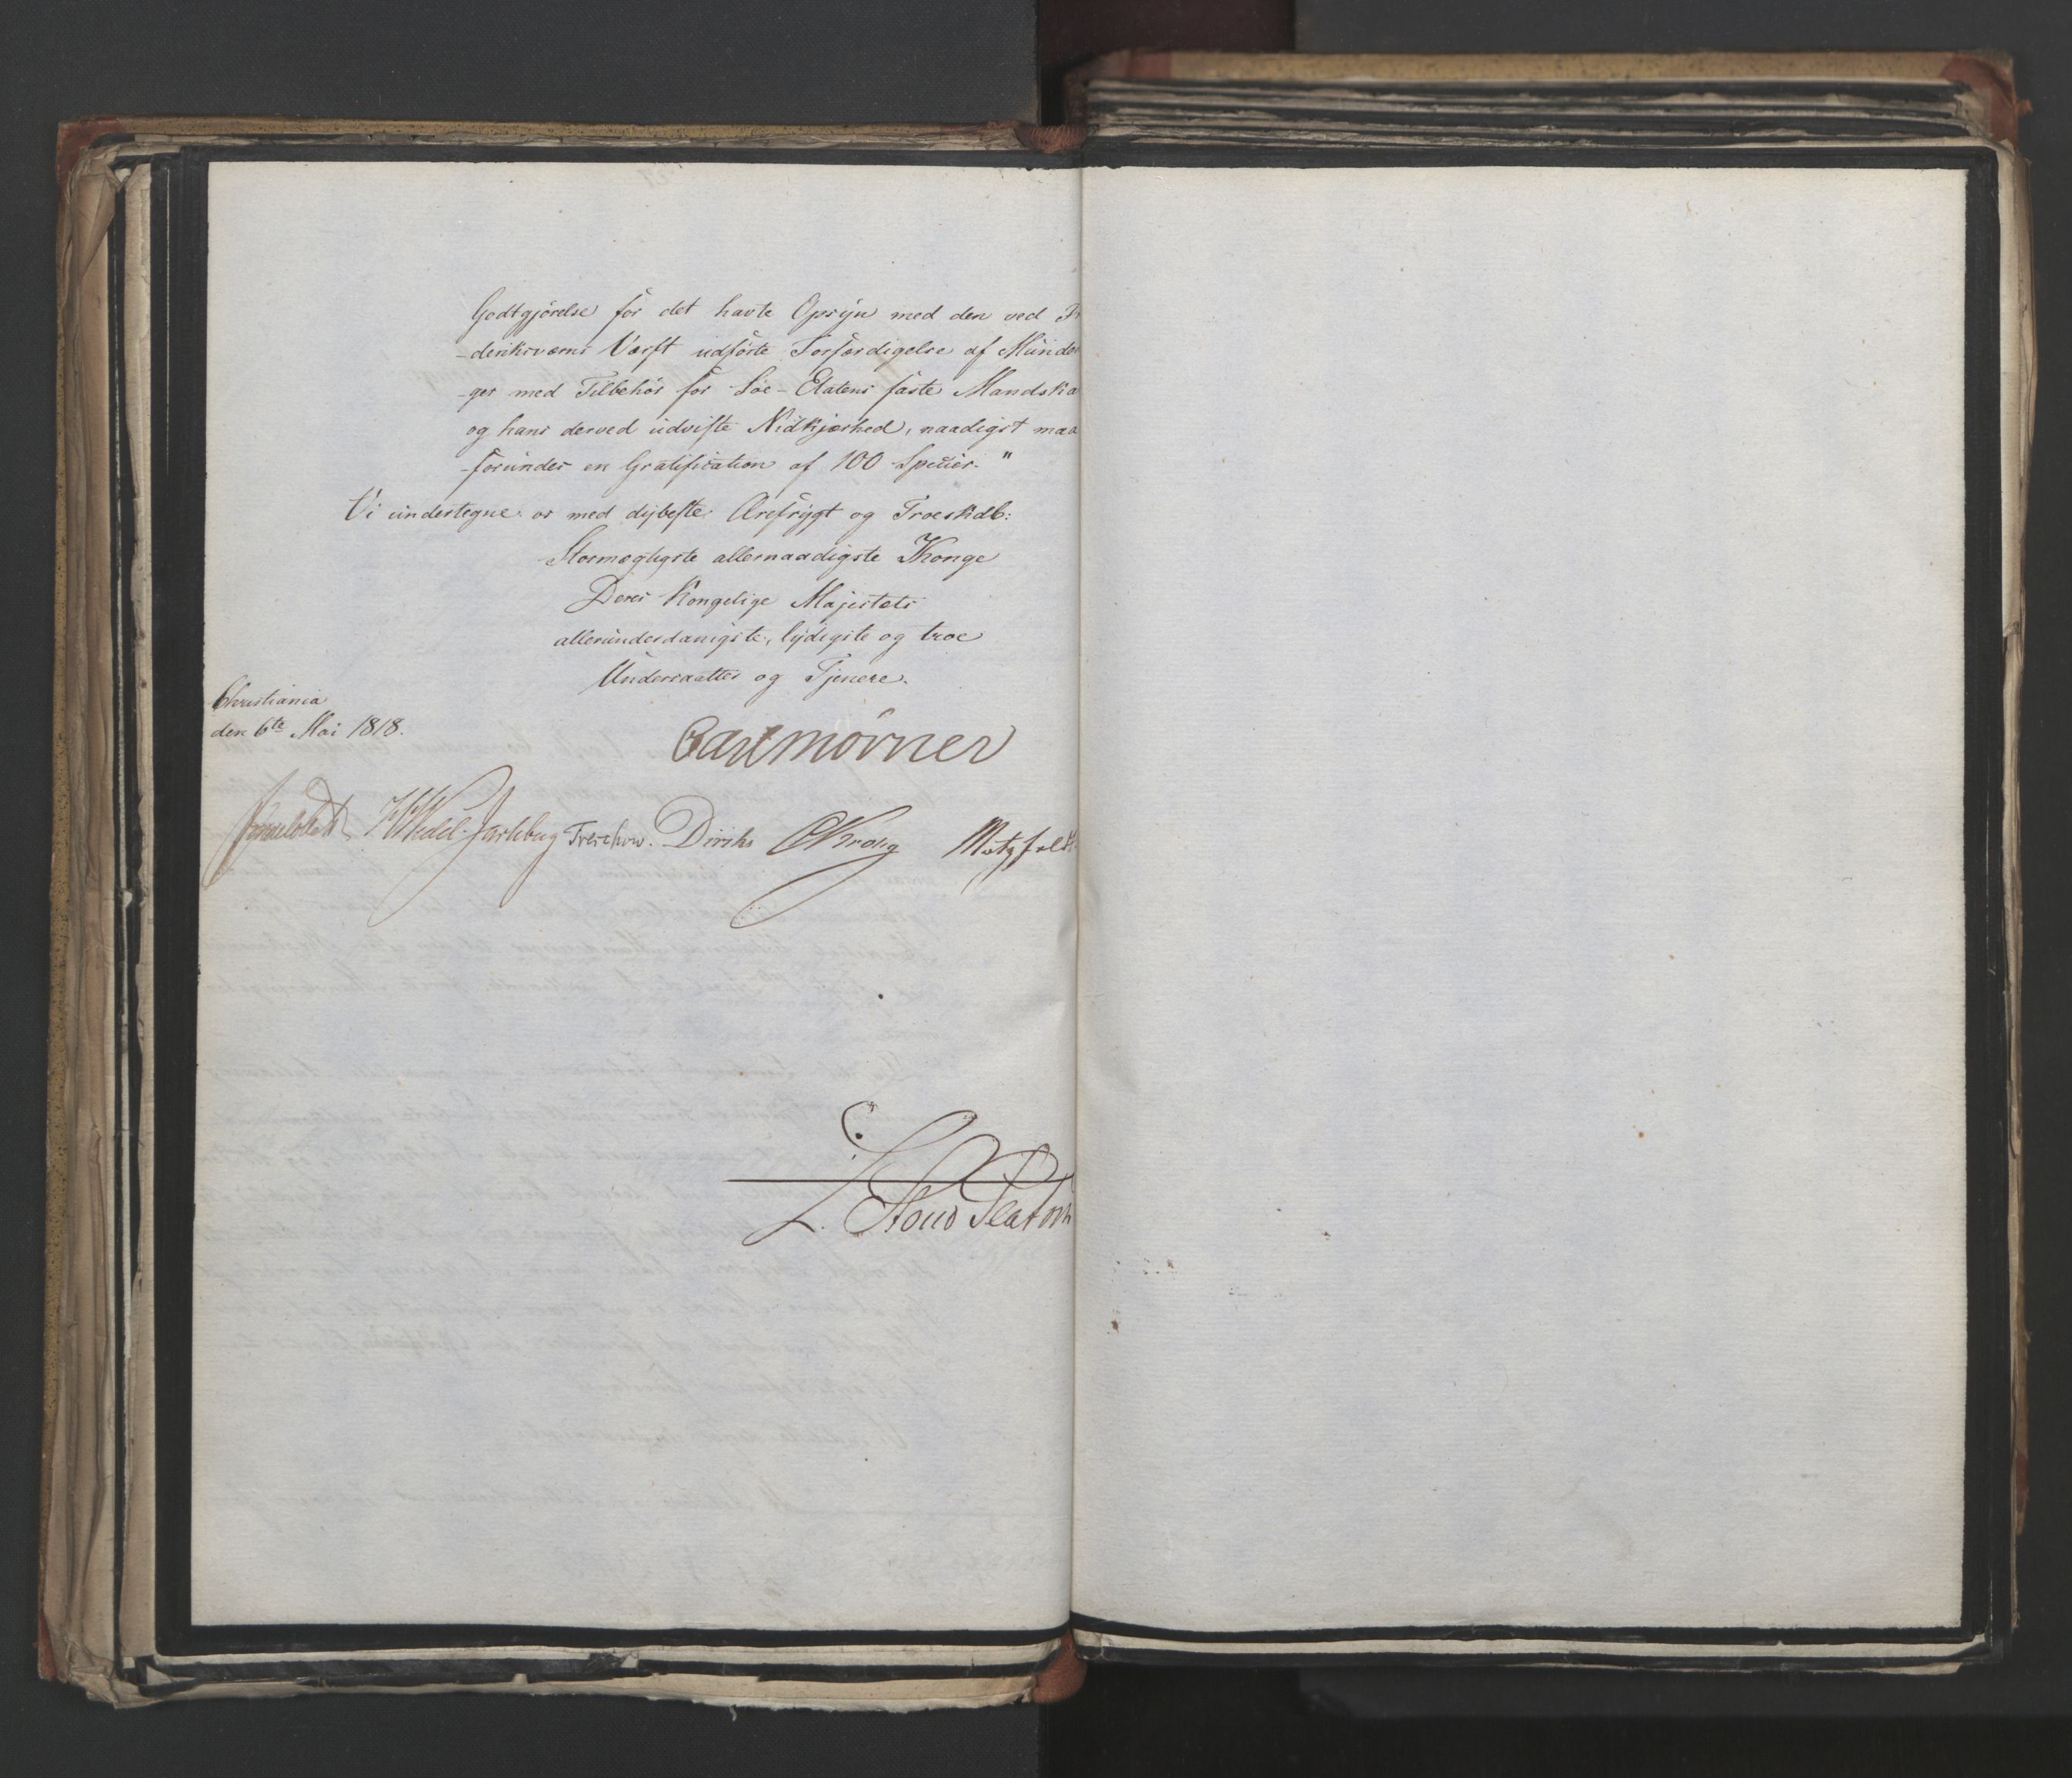 Godtgjörelse for det havte Opsÿn med den ved Fr
-deriksværns Værft udförte Forfærdigelse af Munde
-ger med Tilbehör for Söe-Etatens faste Mandska
og hans derved udviste Nidkjærhed, naadigst maa
-forundes en Gratification af 100 Specier."
Vi undertegne os med dybeste Ærefrygt og Troeskab:
Stormægtigste allernaadigste Konge
Deres Kongelige Majestæts
allerunderdanigste, lydigste og troe
Undersaatter og Tjenere.
Christiania
den 6te Mai 1818.
Carl Mörner
Sommerfeldt HWedel-Jarlsberg Treschow. Diriks CKrog Motzfeldt
L. Stoud Platou